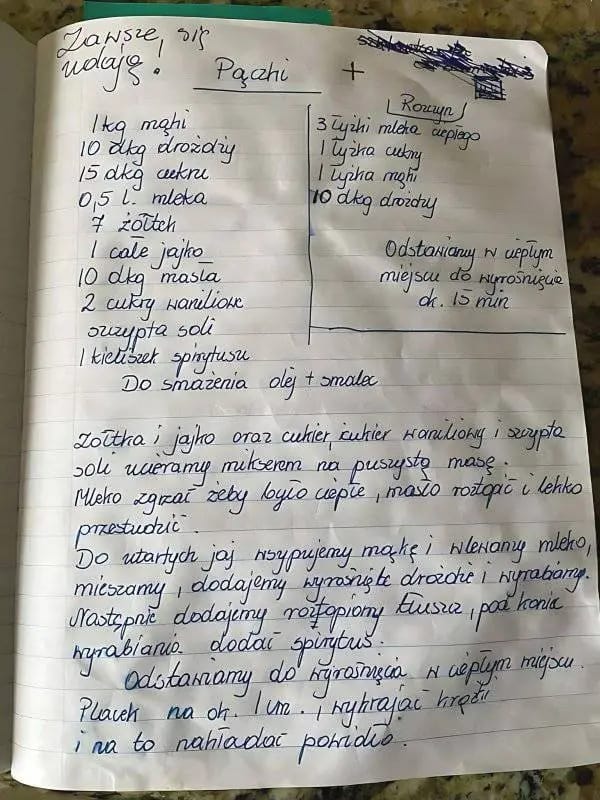 Zawsze się
udają!
Pączki +
1 kg mąki
10 dkg drożdży
15 dkg cukru
0,5 l. mleka
7 żółtek
1 całe jajko
10 dkg masła
2 cukry waniliowe
szczypta soli
1 kieliszek spirytusu
Do smażenia olej + smalec
Rozczyn
3 łyżki mleka ciepłego
1 łyżka cukru
1 łyżka mąki
10 dkg drożdży
Odstawiamy w ciepłym
miejscu do wyrośnięcia
ok. 15 min
Żółtka i jajko oraz cukier, cukier waniliowy i szczypta
soli ucieramy mikserem na puszystą masę.
Mleko zgrzać żeby było ciepłe, masło roztopić i lekko
przestudzić.
Do utartych jaj wsypujemy mąkę i wlewamy mleko,
mieszamy, dodajemy wyrośnięte drożdże i wyrabiamy.
Następnie dodajemy roztopiony tłuszcz, pod konie
wyrabiania dodać spirytus.
Odstawiamy do wyrośnięcia w ciepłym miejscu.
Placek na ok. 1 cm., wykrajać krążki
i na to nakładać powidło.